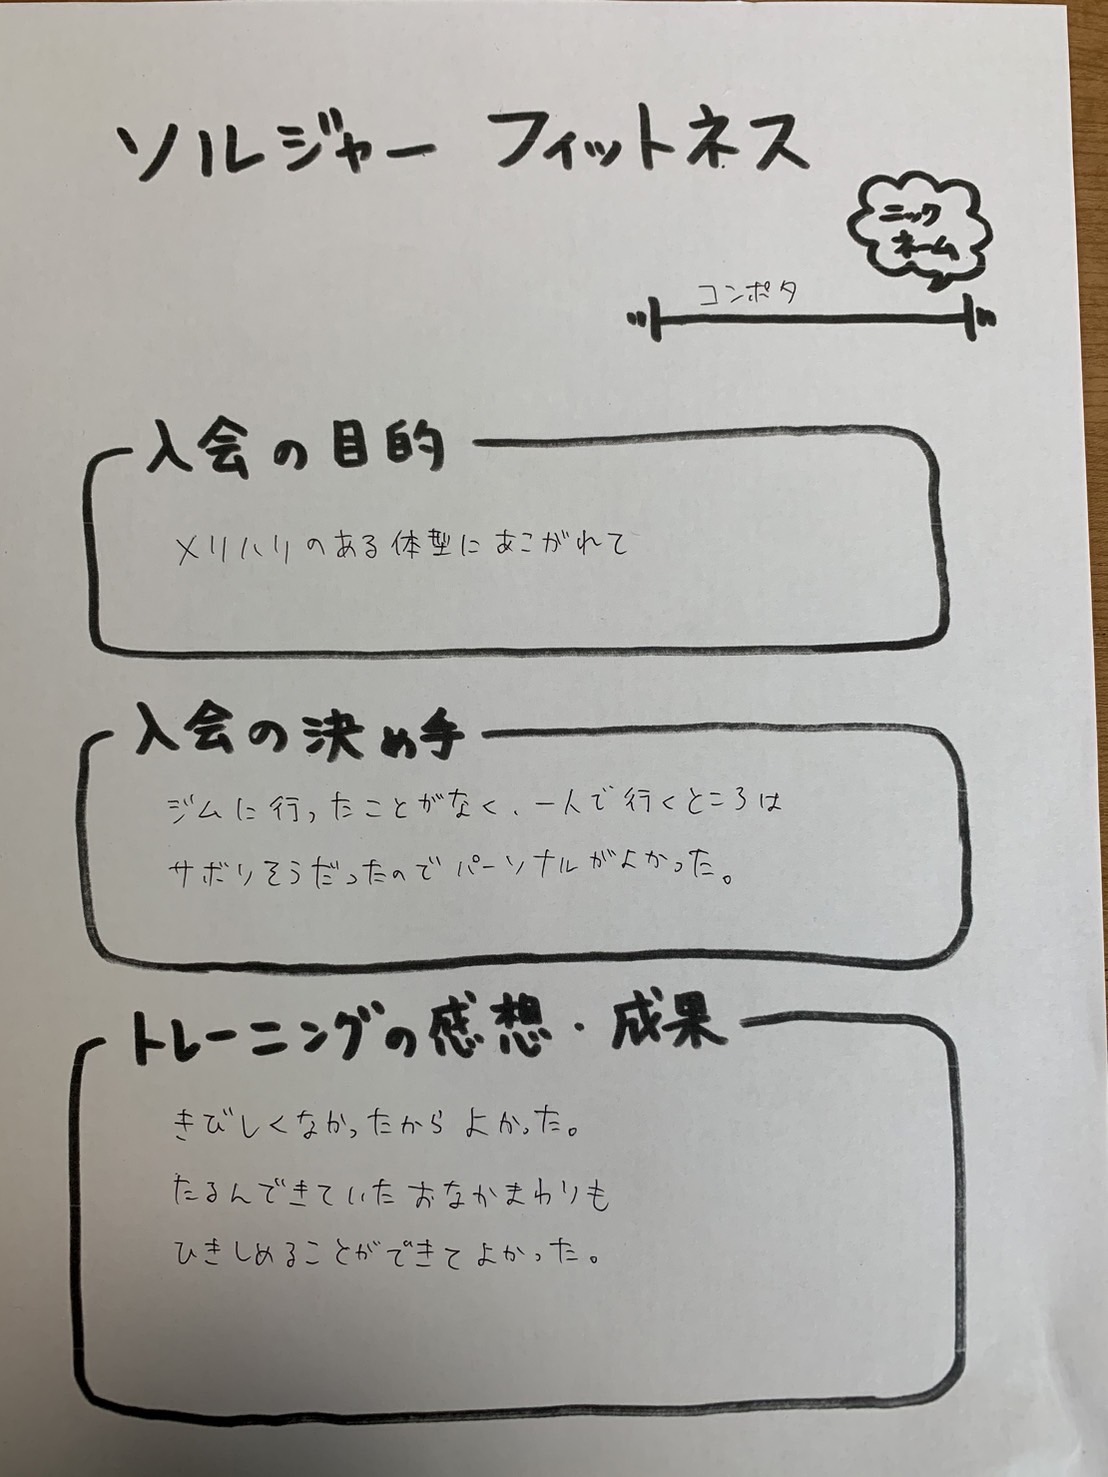 ソルジャー フィットネス
ニック
ネーム
コンポタ
入会の目的
メリハリのある体型にあこがれて
入会の決め手
ジムに行ったことがなく、一人で行くところは
サボりそうだったのでパーソナルがよかった。
トレーニングの感想・成果
きびしくなかったからよかった。
たるんできていたおなかまわりも
ひきしめることができてよかった。